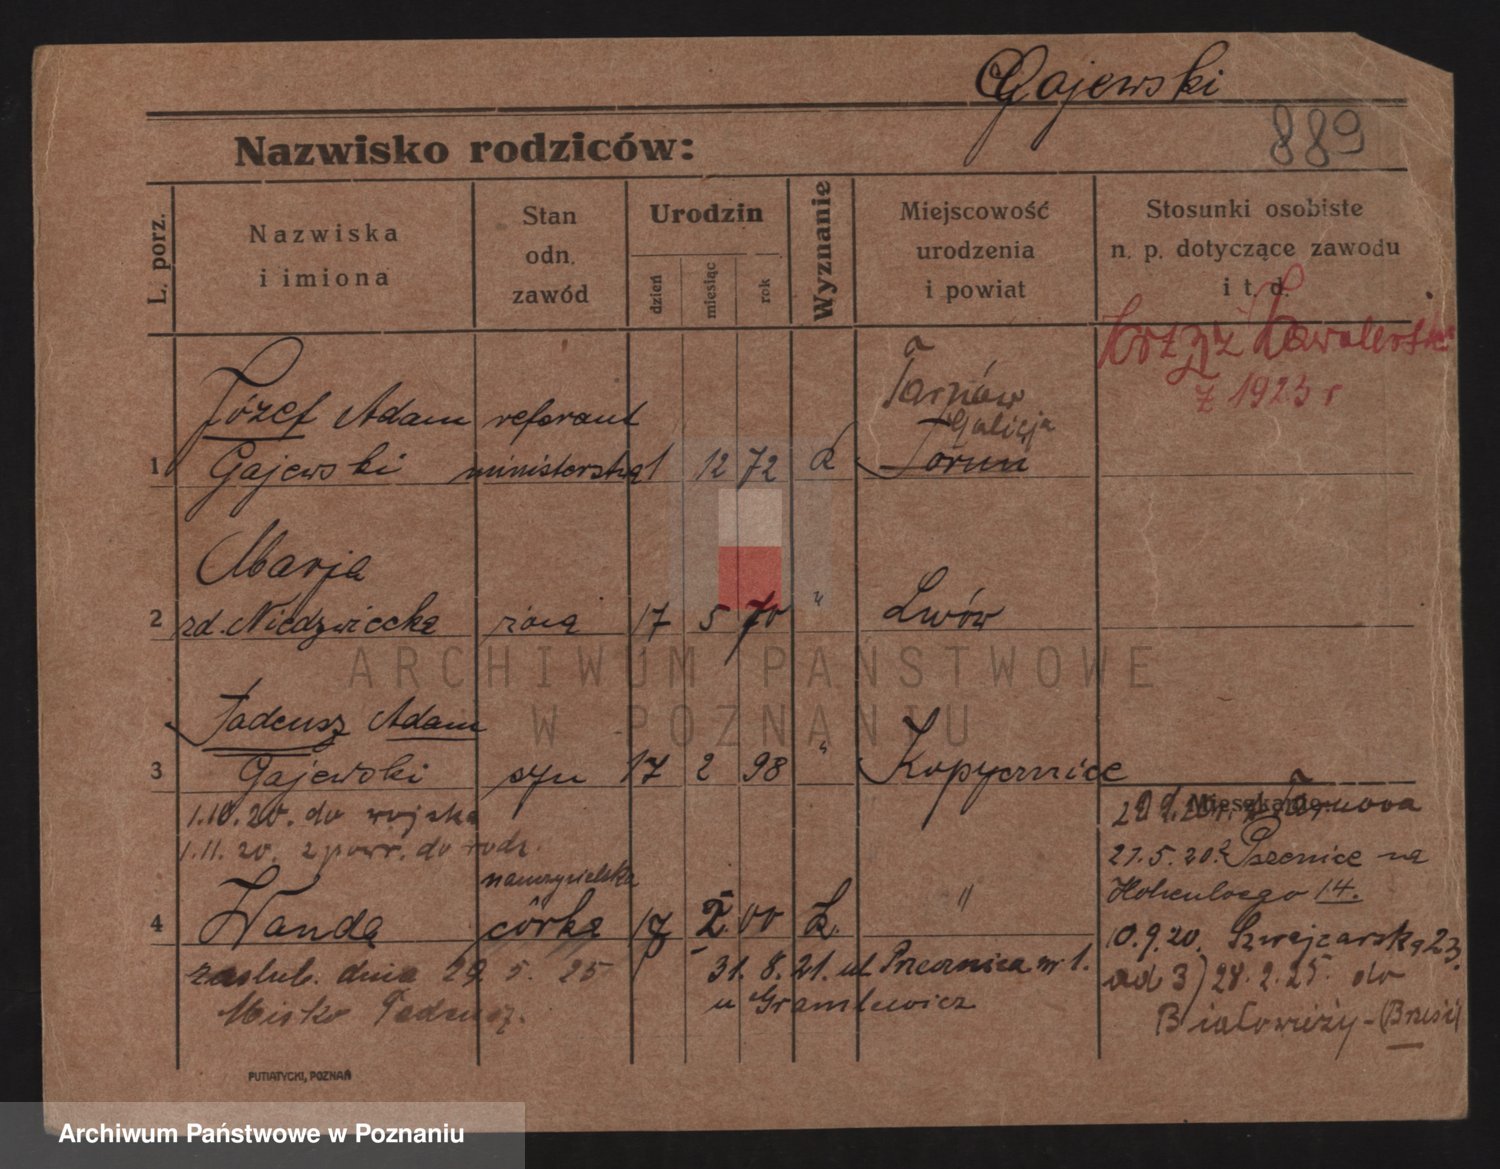 Gajewski
889
Nazwisko rodziców:
L. porz.
Nazwiska
i imiona
Stan
odn.
zawód
Urodzin
dzień
miesiąc
rok
Wyznanie
Miejscowość
urodzenia
i powiat
Stosunki osobiste
n. p. dotyczące zawodu
i t. d.
Krzyż Kawalerski
z 1923 r
Tarnów
Galicja
Józef Adam referent
1 Gajewski 1 12 72 K Toruń
Marja
2 rd. Niedzwiecka żona 17 5 70 " Lwów
Tadeusz Adam
3 Gajewski syn 17 2 98 " Kopycznice
Mieszkanie
1.10.20. do wojska
1.11.20. z powr. do rodz.
27.5.20
na
Hohenloego 14.
nauczycielka
4 Wanda córka 17 00 K "
10.9.20. Szwajcarska 23.
zaslub. dnia 29. 5. 25
31. 8. 21. ul. nr 1.
ad 3) 28.2.25. do
Misko Tadeusz.
u
Białowieży - (Brześć)
PUTIATYCKI, POZNAŃ
ARCHIWUM PAŃSTWOWE
W POZNANIU
Archiwum Państwowe w Poznaniu